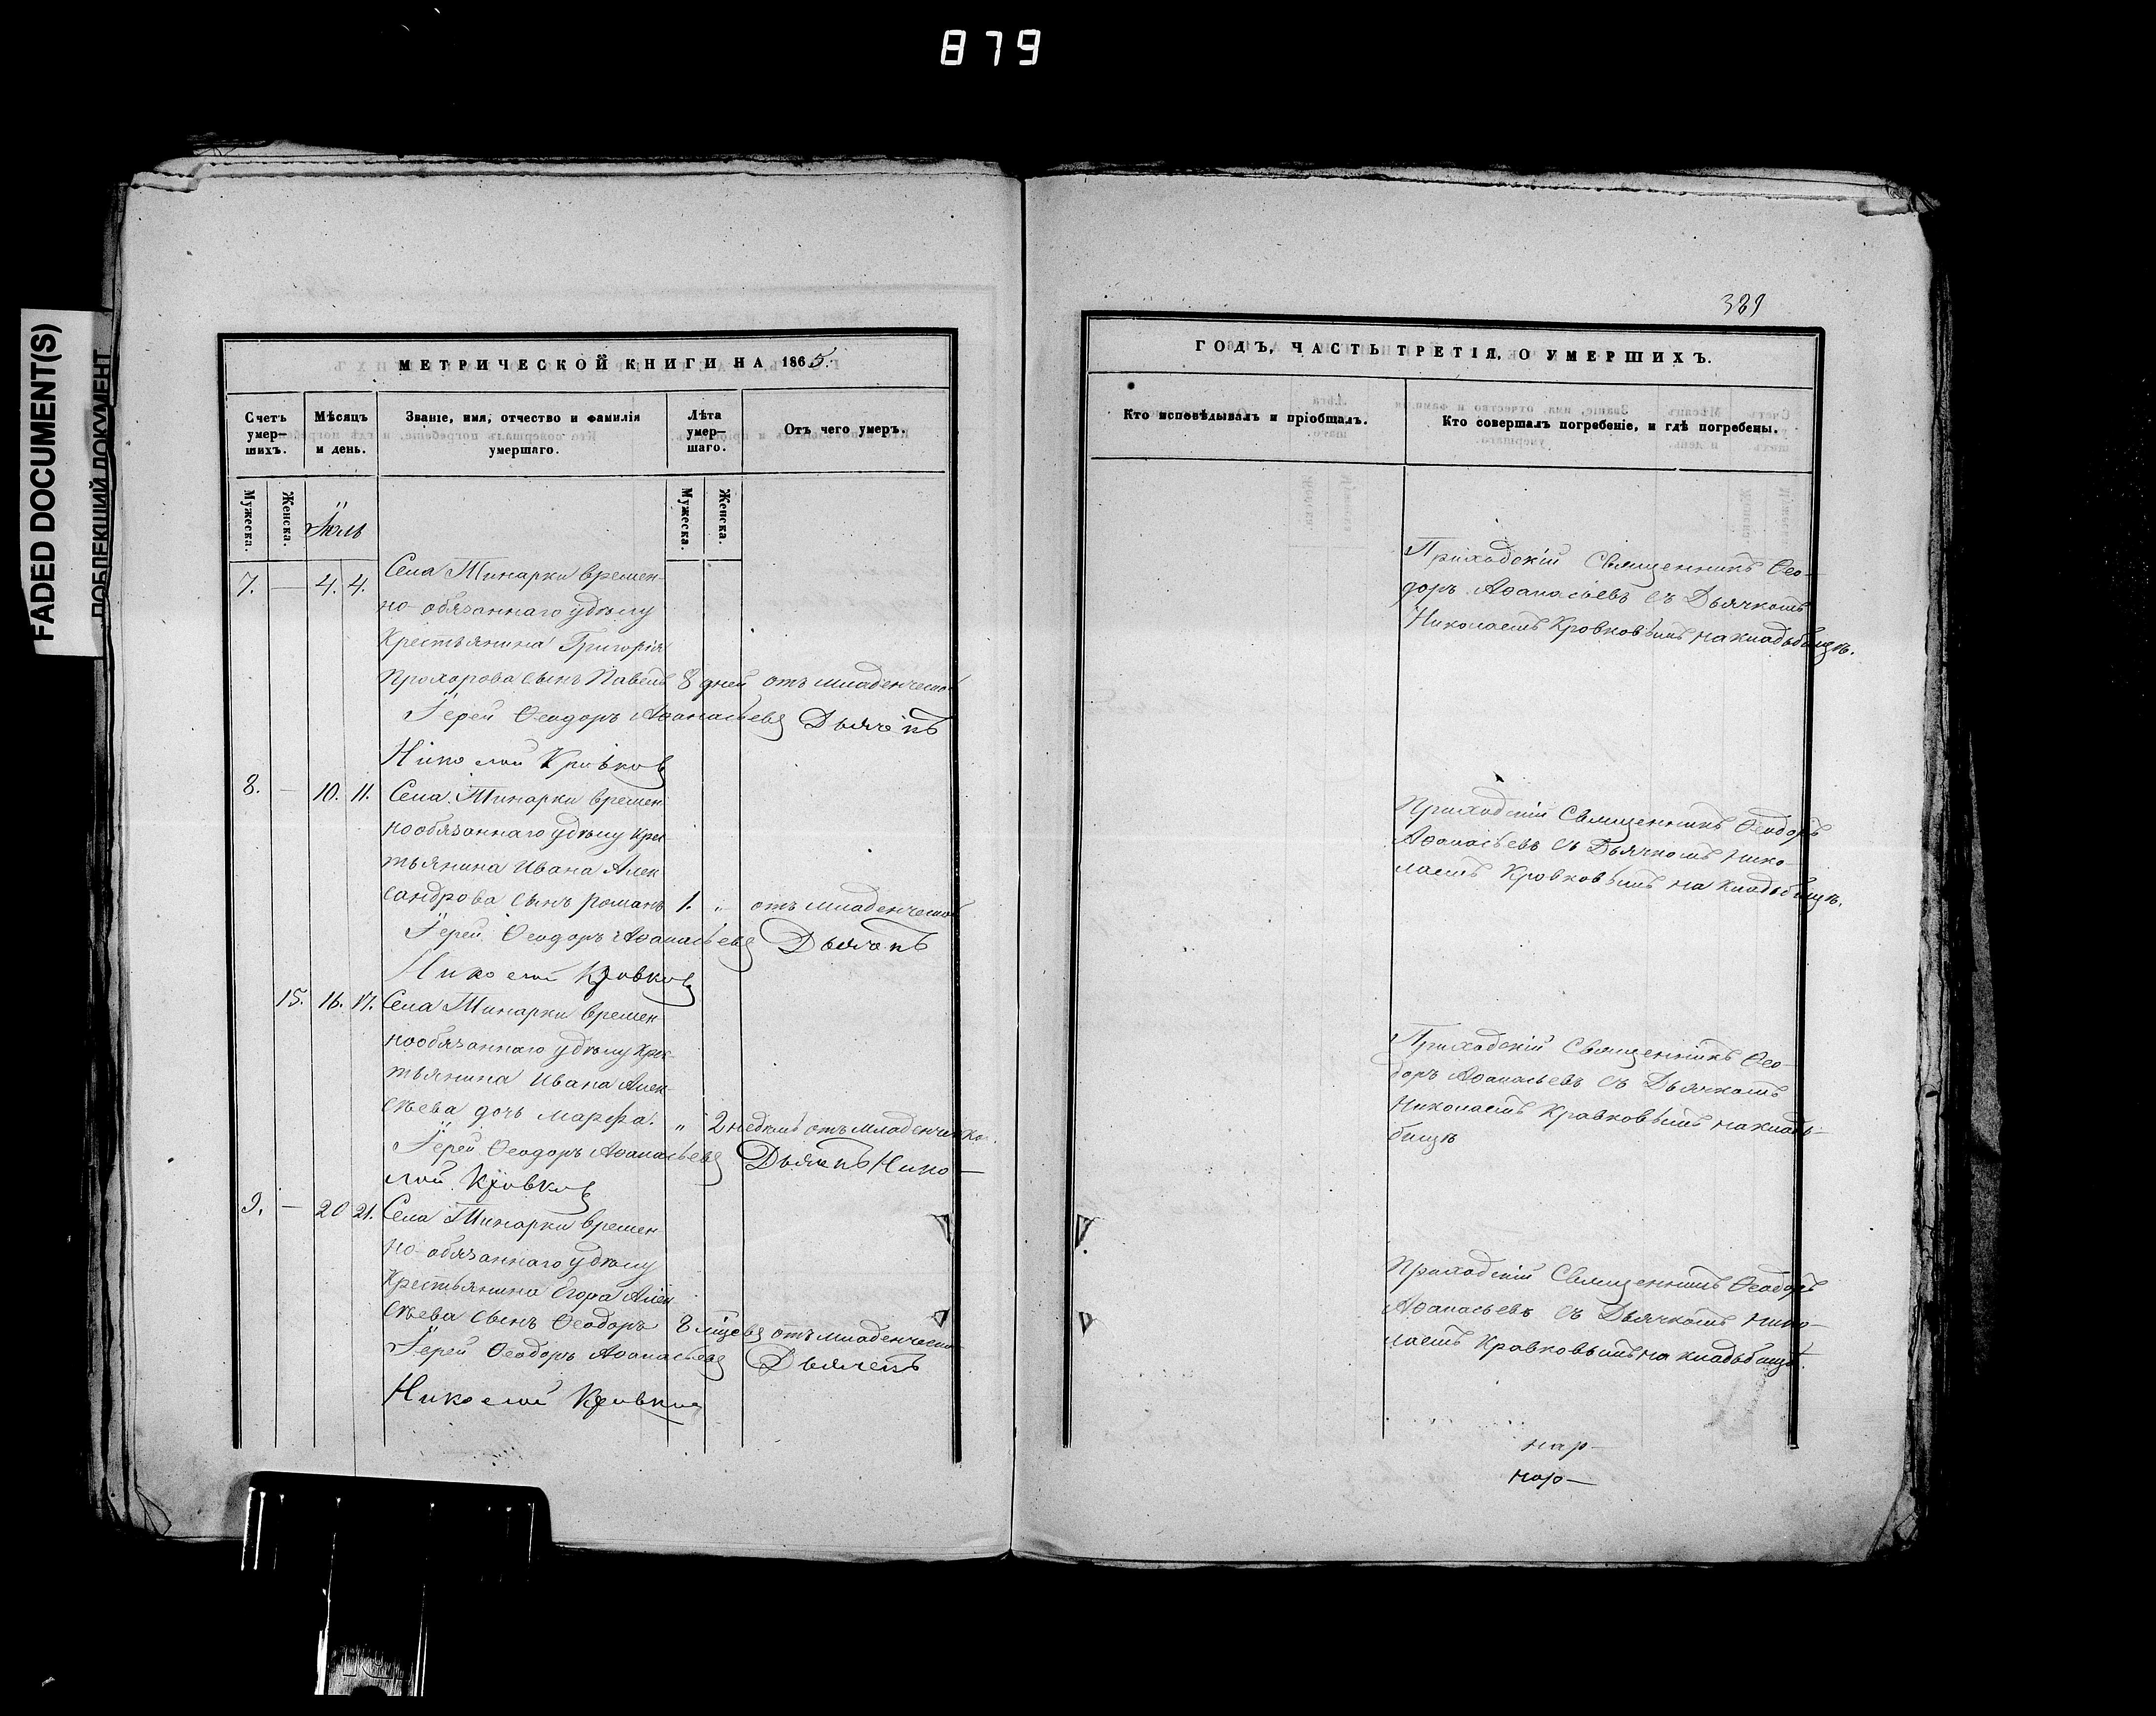 879
FADED DOCUMENT(S)
ПОБЛЕКШИЙ ДОКУМЕНТ
МЕТРИЧЕСКОЙ КНИГИ НА 1865.
Счетъ умер-шихъ.
Мѣсяцъ и день.
Званіе, имя, отчество и фамилія умершаго.
Лѣта умер-шаго.
Отъ чего умеръ.
Мужеска.
Женска.
Іюль
Мужеска.
Женска.
7. — 4. 4. Села Тинарки времен-
но-обязаннаго удѣлу
Крестьянина Григорія
Прохорова сынъ Павелъ 8 дней отъ младенческой
Іерей Ѳеодоръ Аѳанасьевъ Дьячекъ
Николай Кровковъ
8. — 10. 11. Села Тинарки времен
нообязаннаго удѣлу Крес-
тьянина Ивана Алек
сандрова сынъ Романъ 1. „ отъ младенческой
Іерей Ѳеодоръ Аѳанасьевъ Дьячекъ
Николай Кровковъ
15. 16. 17. Села Тинарки времен
нообязаннаго удѣлу Крес-
тьянина Ивана Алек-
сѣева дочь Марфа. „ 2 недѣль отъ младенческо
Іерей Ѳеодоръ Аѳанасьевъ Дьячекъ Нико-
лай Кровковъ
9. — 20 21. Села Тинарки времен
но-обязаннаго удѣлу
Крестьянина Егора Алек
сѣева сынъ Ѳеодоръ 8 мѣсяцевъ отъ младенческо
Іерей Ѳеодоръ Аѳанасьевъ Дьячекъ
Николай Кровковъ
389
ГОДЪ, ЧАСТЬ ТРЕТІЯ, О УМЕРШИХЪ.
Кто исповѣдывалъ и пріобщалъ.
Кто совершалъ погребеніе, и гдѣ погребены.
Приходскій Священникъ Ѳео-
доръ Аѳанасьевъ съ Дьячкомъ
Николаемъ Кровковымъ на кладьбищѣ.
Приходскій Священникъ Ѳеодоръ
Аѳанасьевъ съ Дьячкомъ Нико-
лаемъ Кровковымъ на кладьбищѣ.
Приходскій Священникъ Ѳео-
доръ Аѳанасьевъ съ Дьячкомъ
Николаемъ Кравковымъ на кладь-
бищѣ
Приходскій Священникъ Ѳеодоръ
Аѳанасьевъ съ Дьячкомъ Нико-
лаемъ Кравковымъ на кладьбищѣ.
нар-
нар-